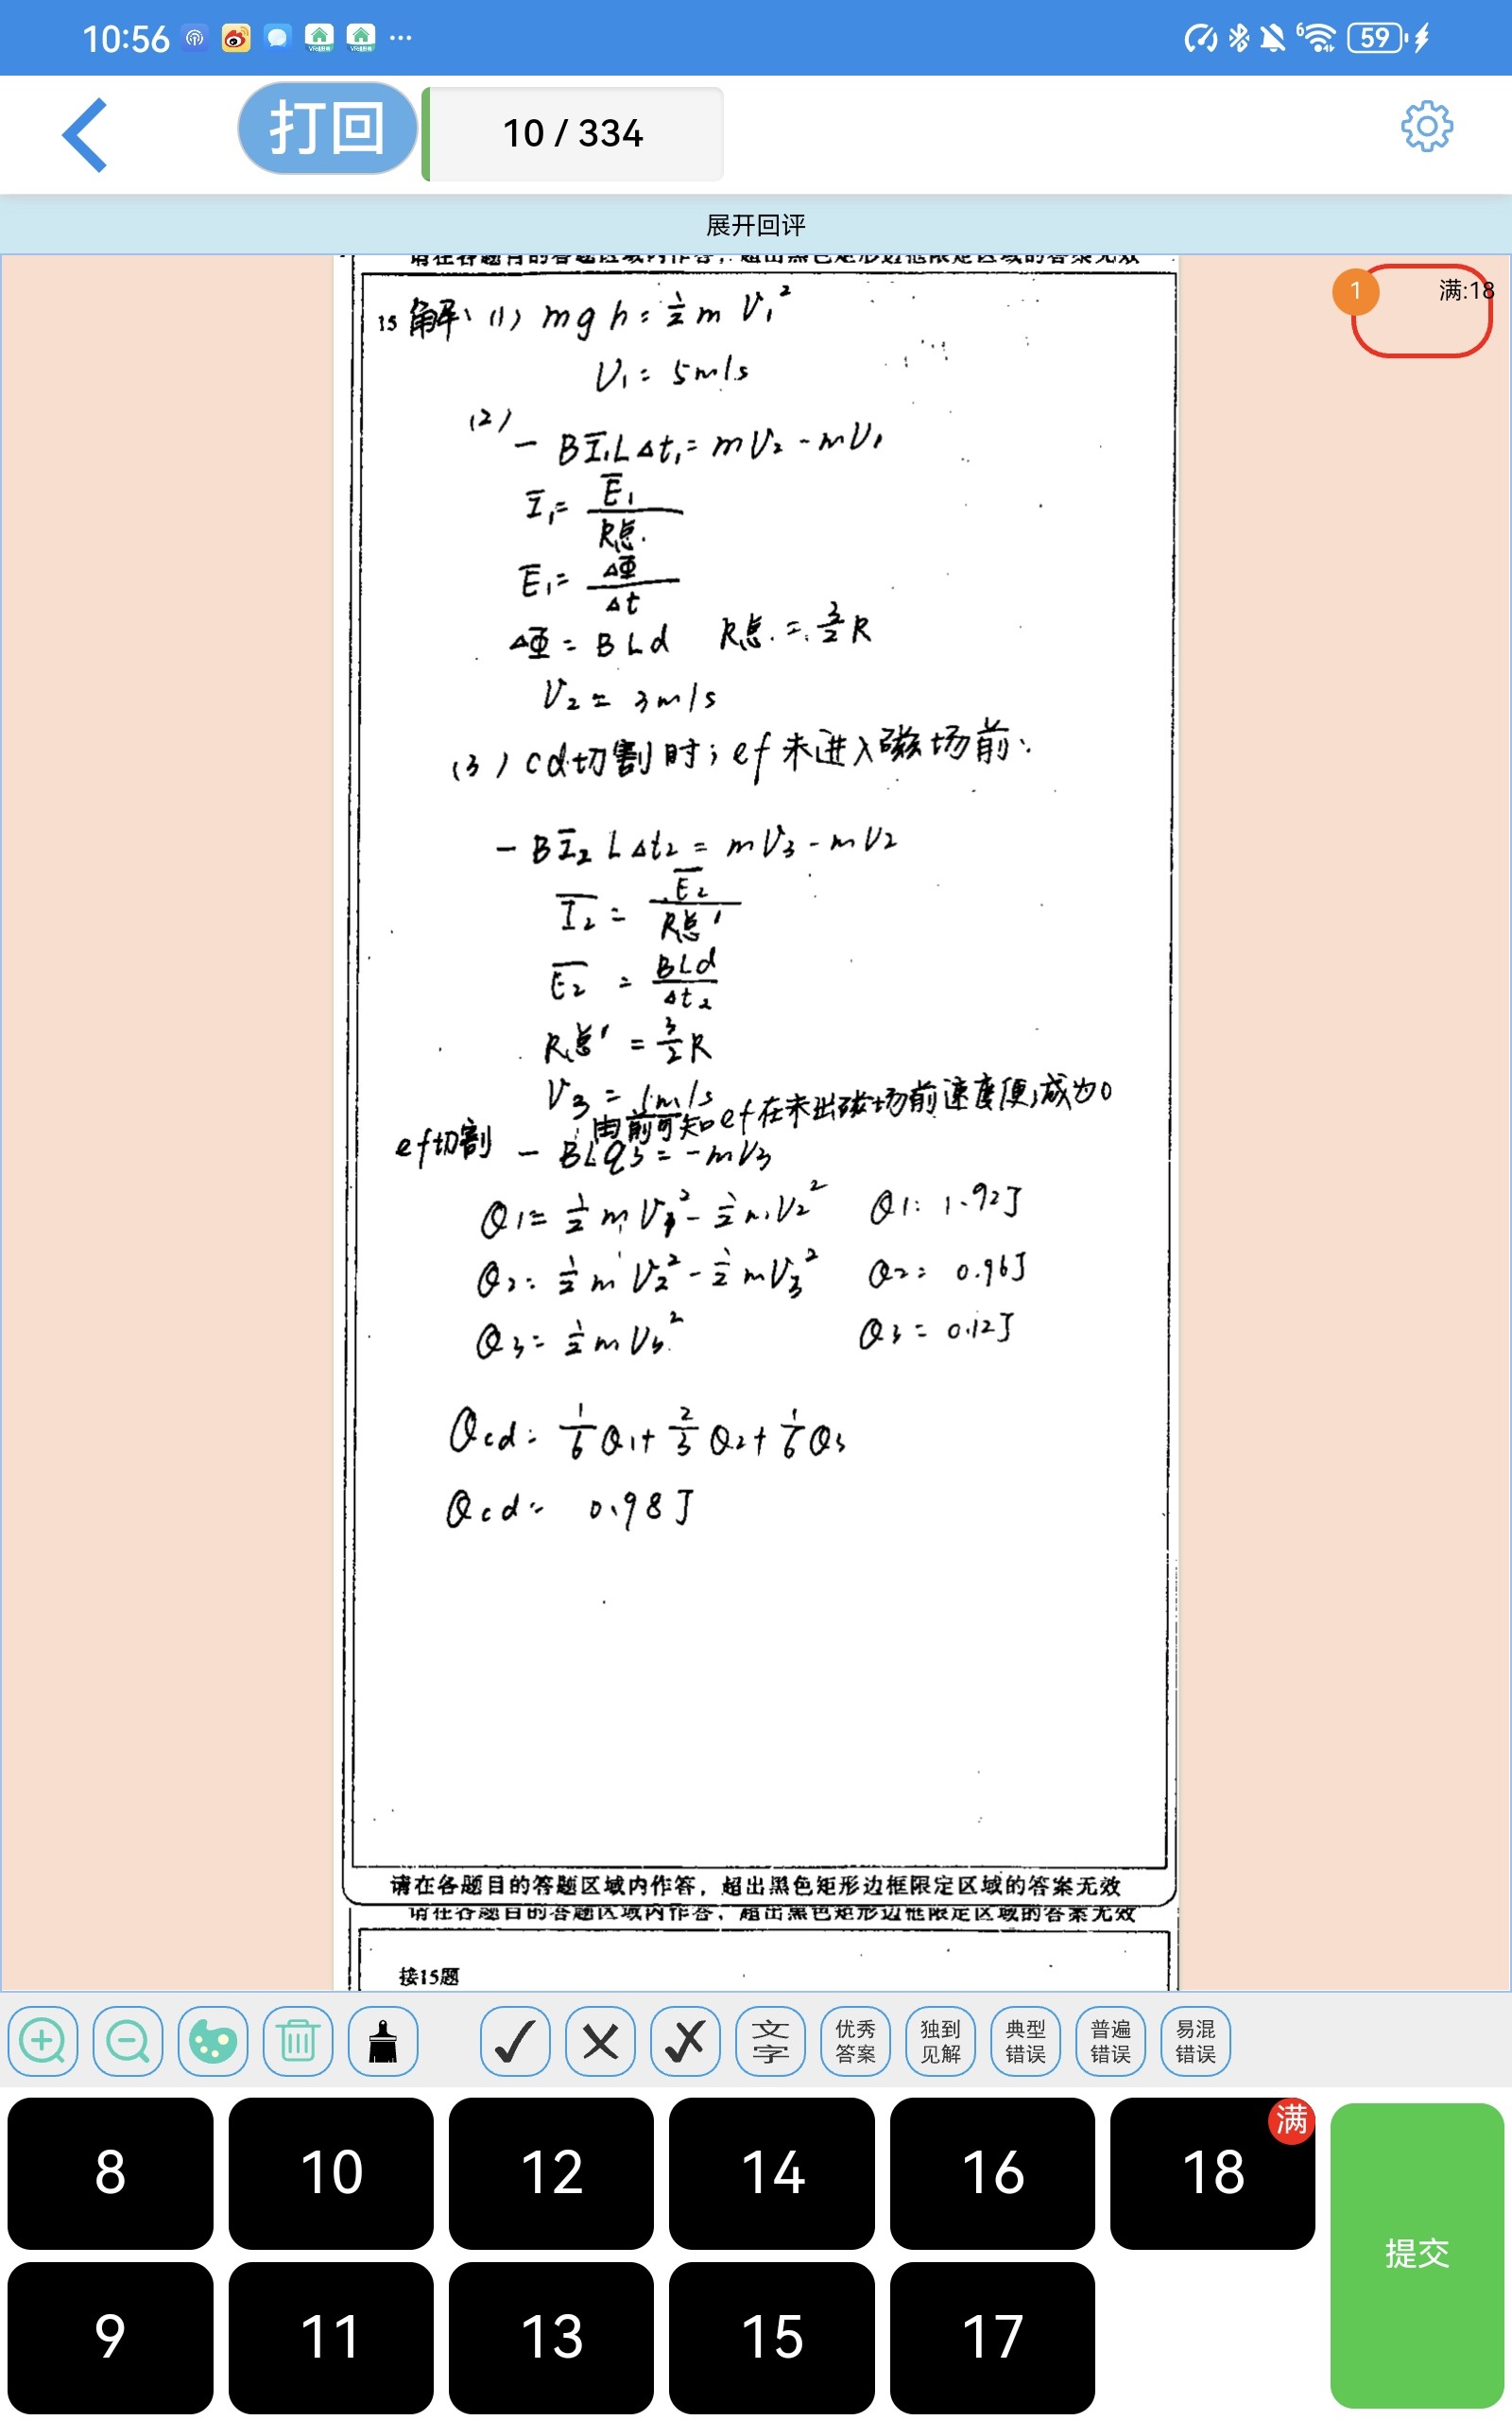 10:56
6
59
打回
10 / 334
展开回评
请在各题目的答题区域内作答，超出黑色矩形边框限定区域的答案无效
1
满:18
15 解: (1) mgh = ½ m V₁²
V₁ = 5m/s
(2) - BĪ₁LΔt₁ = mV₂ - mV₁
Ī₁ = Ē₁/R总.
Ē₁ = ΔΦ/Δt
ΔΦ = BLd R总. = 3/2 R
V₂ = 3m/s
(3) cd切割时; ef未进入磁场前:
- BĪ₂LΔt₂ = mV₃ - mV₂
Ī₂ = Ē₂/R总'
Ē₂ = BLd/Δt₂
R总' = 3/2 R
V₃ = 1m/s
由前可知ef在未出磁场前速度便成为0
ef切割 - BLq₃ = -mV₃
Q₁ = ½mV₁² - ½mV₂² Q₁: 1.92J
Q₂: ½mV₂² - ½mV₃² Q₂ = 0.96J
Q₃ = ½mV₃² Q₃ = 0.12J
Qcd = 1/6 Q₁ + 2/3 Q₂ + 1/6 Q₃
Qcd = 0.98J
请在各题目的答题区域内作答，超出黑色矩形边框限定区域的答案无效
请在各题目的答题区域内作答，超出黑色矩形边框限定区域的答案无效
接15题
文字
优秀答案
独到见解
典型错误
普遍错误
易混错误
8
10
12
14
16
18
满
9
11
13
15
17
提交